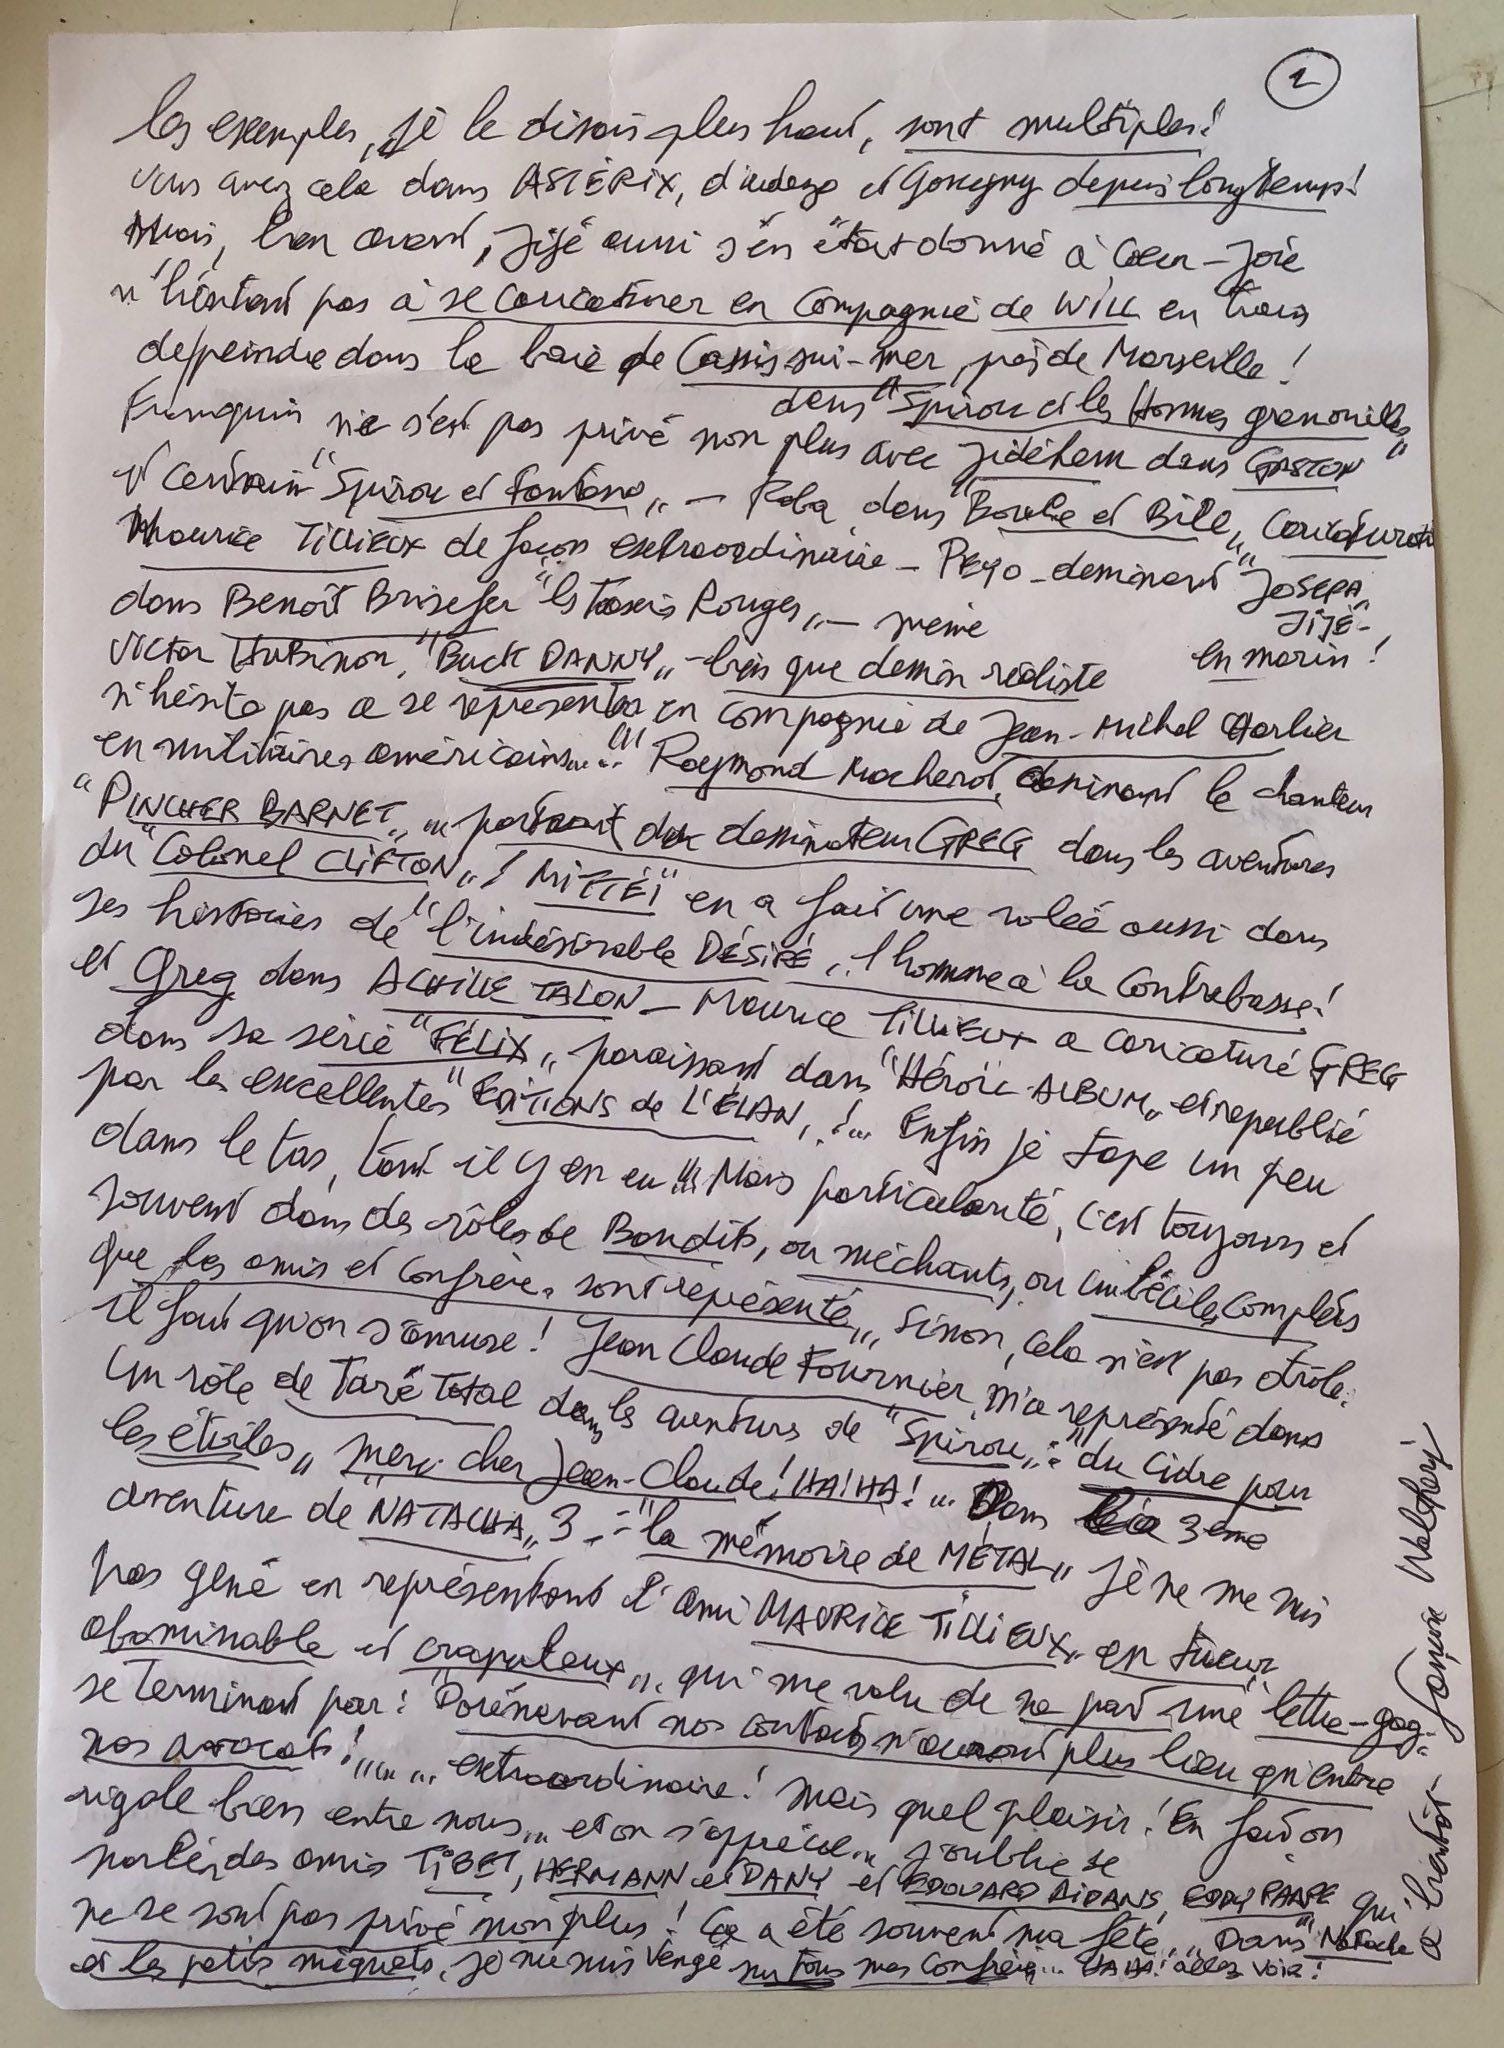 2
les exemples, je le disais plus haut, sont multiples!
vous avez cela dans ASTÉRIX, d'uderzo et Goscigny depuis longtemps!
Mais, bien avant, Jijé aussi s'en était donné à Coeur-Joie
n'hésitant pas à se caricaturer en Compagnie de WILL en train
de peindre dans la baie de Cassis-sur-mer, près de Marseille!
dans "Spirou et les Hommes grenouilles"
Franquin ne s'est pas privé non plus avec Jidéhem dans GASTON
et certain "Spirou et Fantasio" - Roba dans "Boule et Bill" Caricaturant
Maurice TILLIEUX de façon extraordinaire - PEYO - dessinant "JOSEPH
JIJÉ -
en marin!
dans Benoît Brisefer "les Taxis Rouges" - même
Victor HUBinon, "BUCK DANNY" - bien que dessin réaliste
n'hésite pas a se représenter en compagnie de Jean-Michel Charlier
en militaires américains...!!! Raymond Macherot, dessinant le chanteur
"PINCHER BARNET" ... portrait du dessinateur GREG dans les aventures
du "Colonel CLIFTON"! "MiTTEï" en a fait une volée aussi dans
ses histoires de "l'indésirable DÉSIRÉ", l'homme à la Contrebasse!
et Greg dans ACHILLE TALON - Maurice TILLIEUX a caricaturé GREG
dans sa série "FÉLIX" paraissant dans "Héroïc-ALBUM" et republié
par les excellentes "EDITIONS de L'ÉLAN"!... Enfin je tape un peu
dans le tas, tant il y en eu!!! Mais particularité, c'est toujours et
souvent dans des rôles de Bandits, ou méchants, ou imbéciles complets
que les amis et Confrère sont représenté" sinon, cela n'est pas drôle.
il faut qu'on s'amuse! Jean Claude Fournier m'a représenté dans
un rôle de Taré Total dans les aventures de "Spirou" : "du Cidre pour
les étoiles" merci cher Jean-Claude! HA! HA!... Dans la 3ème
aventure de "NATACHA" 3 - : "la mémoire de MÉTAL" Je ne me suis
pas gêné en représentant l'ami MAURICE TILLIEUX en tueur
abominable et crapuleux", qui me valu de sa part une lettre-gag:
se terminant par : "Dorénavant nos contacts n'auront plus lieu qu'entre
nos avocats!... ... extraordinaire! mais quel plaisir! En fait on
rigole bien entre nous... et on s'apprécie... J'oublie se
parler des amis TIBET, HERMANN et DANY et EDOUARD AIDANS, EDDY PAAPE qui
ne se sont pas privé non plus! Ça a été souvent ma fête... Dans "Natacha
et les petits miquets", je me suis Vengé sur tous mes Confrères... HAHA! allez voir!
a bientôt - François Walthéry